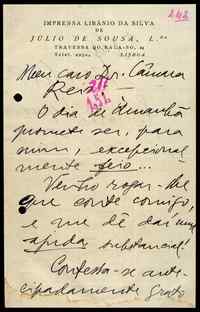 242
IMPRENSA LIBÂNIO DA SILVA
DE
JULIO DE SOUSA, L.da
TRAVESSA DO FALA-SÓ, 24
LISBOA
Meu caro Dr. Câmara
Reis:
O dia de ámanhã
promete ser, para
mim, excepcional
mente feio...
Venho rogar-lhe
que conte comigo,
e me dê daí uma
ajuda substancial!
Confessa-se ante-
cipadamente grato